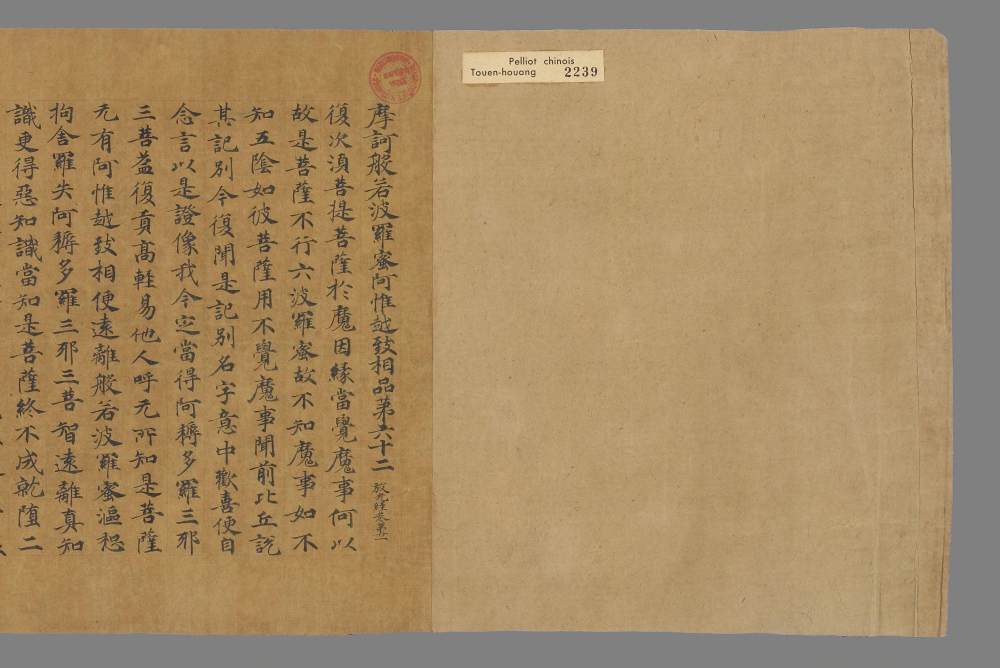 Pelliot chinois
Touen-houang 2239
摩訶般若波羅蜜阿惟越致相品第六十二 放光經卷第
復次湏菩提菩薩於魔因緣當覺魔事何以
故是菩薩不行六波羅蜜故不知魔事如不
知五陰如彼菩薩用不覺魔事聞前比丘說
其記別今復聞是記別名字意中歡喜便自
念言以是證像我今定當得阿耨多羅三耶
三菩益復貢高輕易他人呼无所知是菩薩
无有阿惟越致相便遠離般若波羅蜜漚惒
拘舍羅失阿耨多羅三耶三菩智遠離真知
識更得惡知識當知是菩薩終不成就堕二